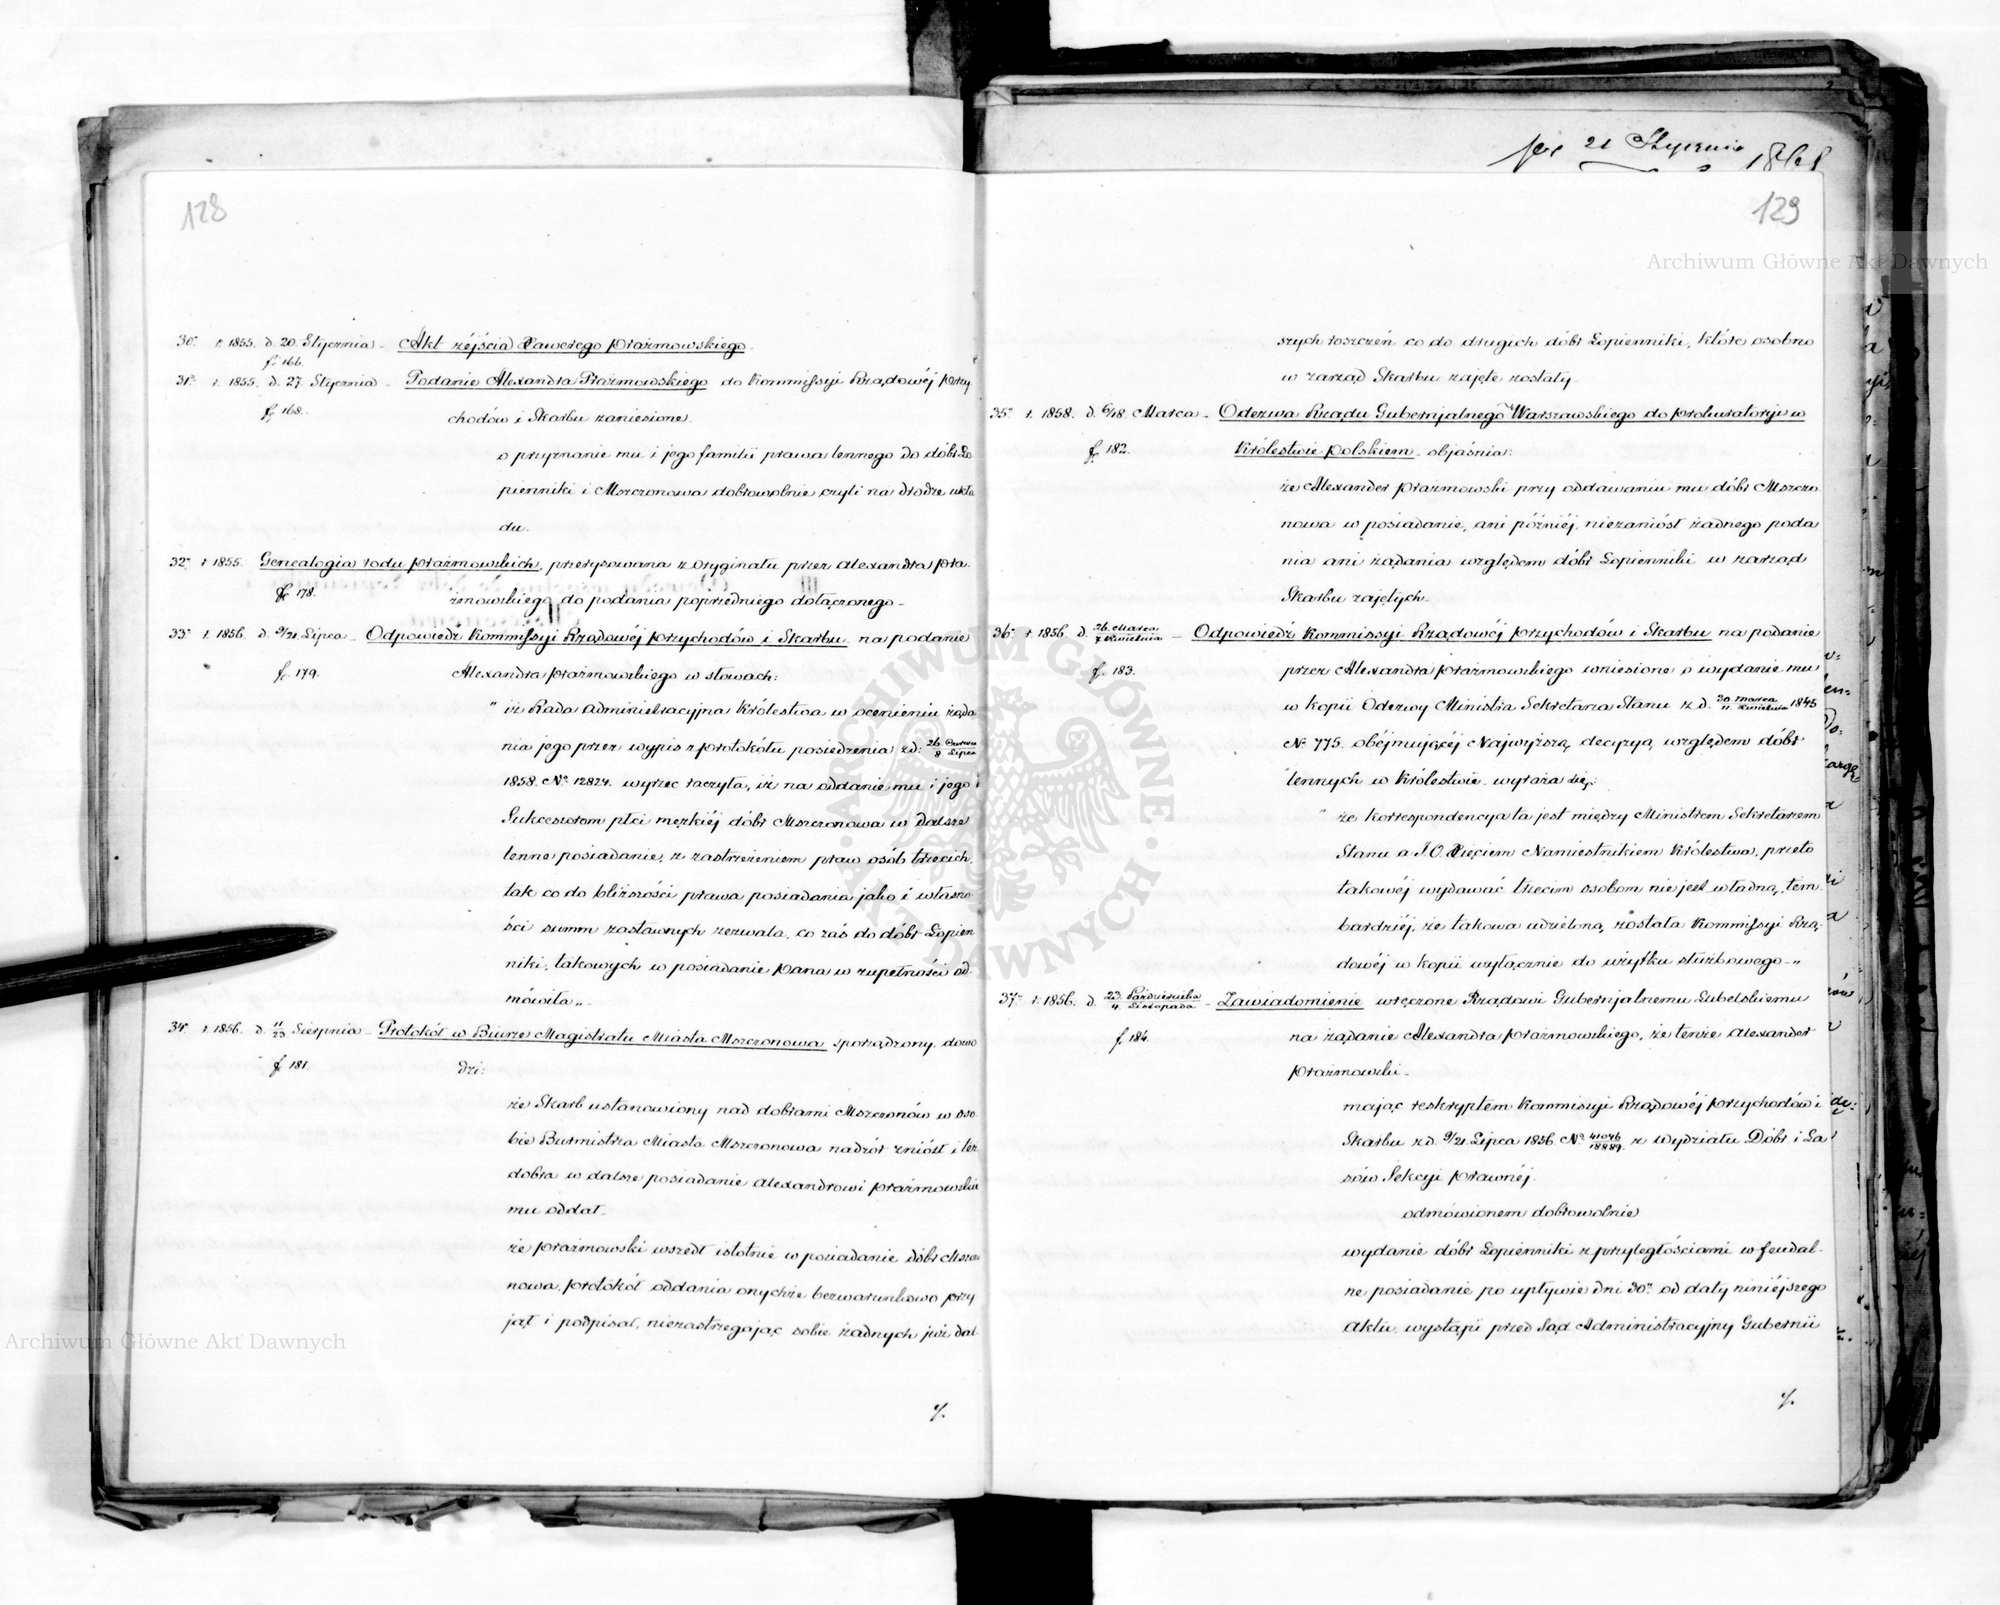 128
30º r. 1855. d. 20. Stycznia - Akt zéjścia Xawerego Prażmowskiego.
f. 166.
31º r. 1855. d. 27. Stycznia - Podanie Alexandra Prażmowskiego do Kommissyi Rządowéj Przy
f. 168. chodów i Skarbu zaniesione
o przyznanie mu i jego familii prawa lennego do dóbr Ło
pienniki i Mszczonowa dobrowolnie czyli na drodze ukła
du.
32º r 1855. Genealogia rodu Prażmowskich, przerysowana z oryginału przez Alexandra Pra
f. 178. żmowskiego do podania poprzedniego dołączonego -
33º r. 1856. d. 9/21. Lipca - Odpowiedź Kommissyi Rządowéj Przychodów i Skarbu na podanie
f. 179. Alexandra Prażmowskiego w słowach:
" iż Rada Administracyjna Królestwa w ocenieniu żąda
nia jego przez wypis z protokółu posiedzenia z d: 26. Czerwca / 8. Lipca
1858. Nº 12824. wyrzec raczyła, iż na oddanie mu i jego
Sukcesorom płci męzkiéj dóbr Mszczonowa w dalsze
lenne posiadanie, z zastrzeżeniem praw osób trzecich,
tak co do bliższości prawa posiadania jako i własno
ści summ zastawnych zezwala, co zaś do dóbr Łopien
niki, takowych w posiadanie Pana w zupełności od
mówiła „ -
34º r. 1856. d. 11/23 Sierpnia - Protokół w Biurze Magistratu Miasta Mszczonowa sporządzony, dowo
f. 181. dzi:
że Skarb ustanowiony nad dobrami Mszczonów w oso
bie Burmistrza Miasta Mszczonowa nadzór zniósł i też
dobra w dalsze posiadanie Alexandrowi Prażmowskie
mu oddał.
że Prażmowski wszedł istotnie w posiadanie dóbr Mszczo
nowa, protokół oddania onychże bezwarunkowo przy
jął i podpisał, niezastrzegając sobie żadnych już dal
%.
21 Stycznia 1868
129
szych roszczeń co do drugich dóbr Łopienniki, które osobno
w zarząd Skarbu zajęte zostały.
35º r. 1858. d. 6/18. Marca - Odezwa Rządu Gubernjalnego Warszawskiego do Prokuratoryi w
f. 182. Królestwie Polskiem objaśnia:
że Alexander Prażmowski przy oddawaniu mu dóbr Mszczo
nowa w posiadanie, ani później, niezaniósł żadnego poda
nia ani żądania względem dóbr Łopienniki w zarząd
Skarbu zajętych.
36º r. 1856. d. 26. Marca / 7 Kwietnia - Odpowiedź Kommissyi Rządowéj Przychodów i Skarbu na podanie
f. 183. przez Alexandra Prażmowskiego wniesione o wydanie mu
w kopii Odezwy Ministra Sekretarza Stanu z d. 30. Marca / 11. Kwietnia 1845
Nº 775. obéjmującéj Najwyższą decyzyą względem dóbr
lennych w Królestwie wyraża się:
" że korrespondencya ta jest między Ministrem Sekretarzem
Stanu a J. O. Xięciem Namiestnikiem Królestwa, przeto
takowéj wydawać trzecim osobom nie jest władną, tem
bardziéj, że takowa udzieloną została Kommissyi Rzą
dowéj w kopii wyłącznie do użytku służbowego - „
37º r. 1856. d. 23. Października / 4. Listopada - Zawiadomienie wręczone Rządowi Gubernjalnemu Lubelskiemu
f. 184. na żądanie Alexandra Prażmowskiego, że tenże Alexander
Prażmowski -
mając reskryptem Kommissyi Rządowéj Przychodów i
Skarbu z d. 9/21. Lipca 1856. Nº 41046/18889. z wydziału Dóbr i La
sów Sekcyi Prawnéj.
odmówionem dobrowolnie
wydanie dóbr Łopienniki z przyległościami w feudal-
ne posiadanie po upływie dni 30º od daty niniéjszego
Aktu, wystąpi przed Sąd Administracyjny Gubernii
%.
Archiwum Główne Akt Dawnych
Archiwum Główne Akt Dawnych